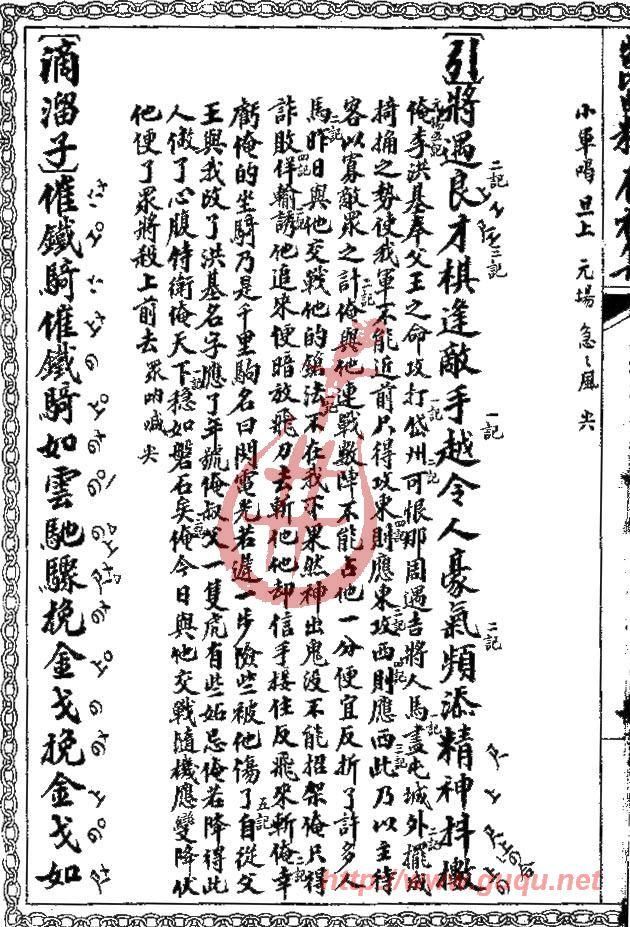 小軍唱旦上 元場急〻風尖
〔引〕將遇良才棋逢敵手越令人豪氣頻添精神抖擻
俺李洪基奉父王之命攻打岱州可恨那周遇吉將人馬盡屯城外擺成
掎捔之勢使我軍不能近前只得攻東則應東攻西則應西此乃以主待
客以寡敵眾之計俺與他連戰數陣不能占他一分便宜反折了許多人
馬昨日與他交戰他的鎗法不在我下果然神出鬼沒不能招架俺只得
詐敗佯輸誘他追來便暗放飛刀去斬他他却信手接住反飛來斬俺幸
虧俺的坐騎乃是千里駒名曰閃電光若遲一步險些被他傷了自從父
王與我改了洪基名字應了年號俺叔父一隻虎有些妬忌俺若降得此
人做了心腹侍衛俺天下穩如磐石矣俺今日與他交戰隨機應變降伏
他便了眾將殺上前去 眾吶喊尖
〔滴溜子〕催鐵騎催鐵騎如雲馳驟挽金戈挽金戈如
http://www.guqu.net